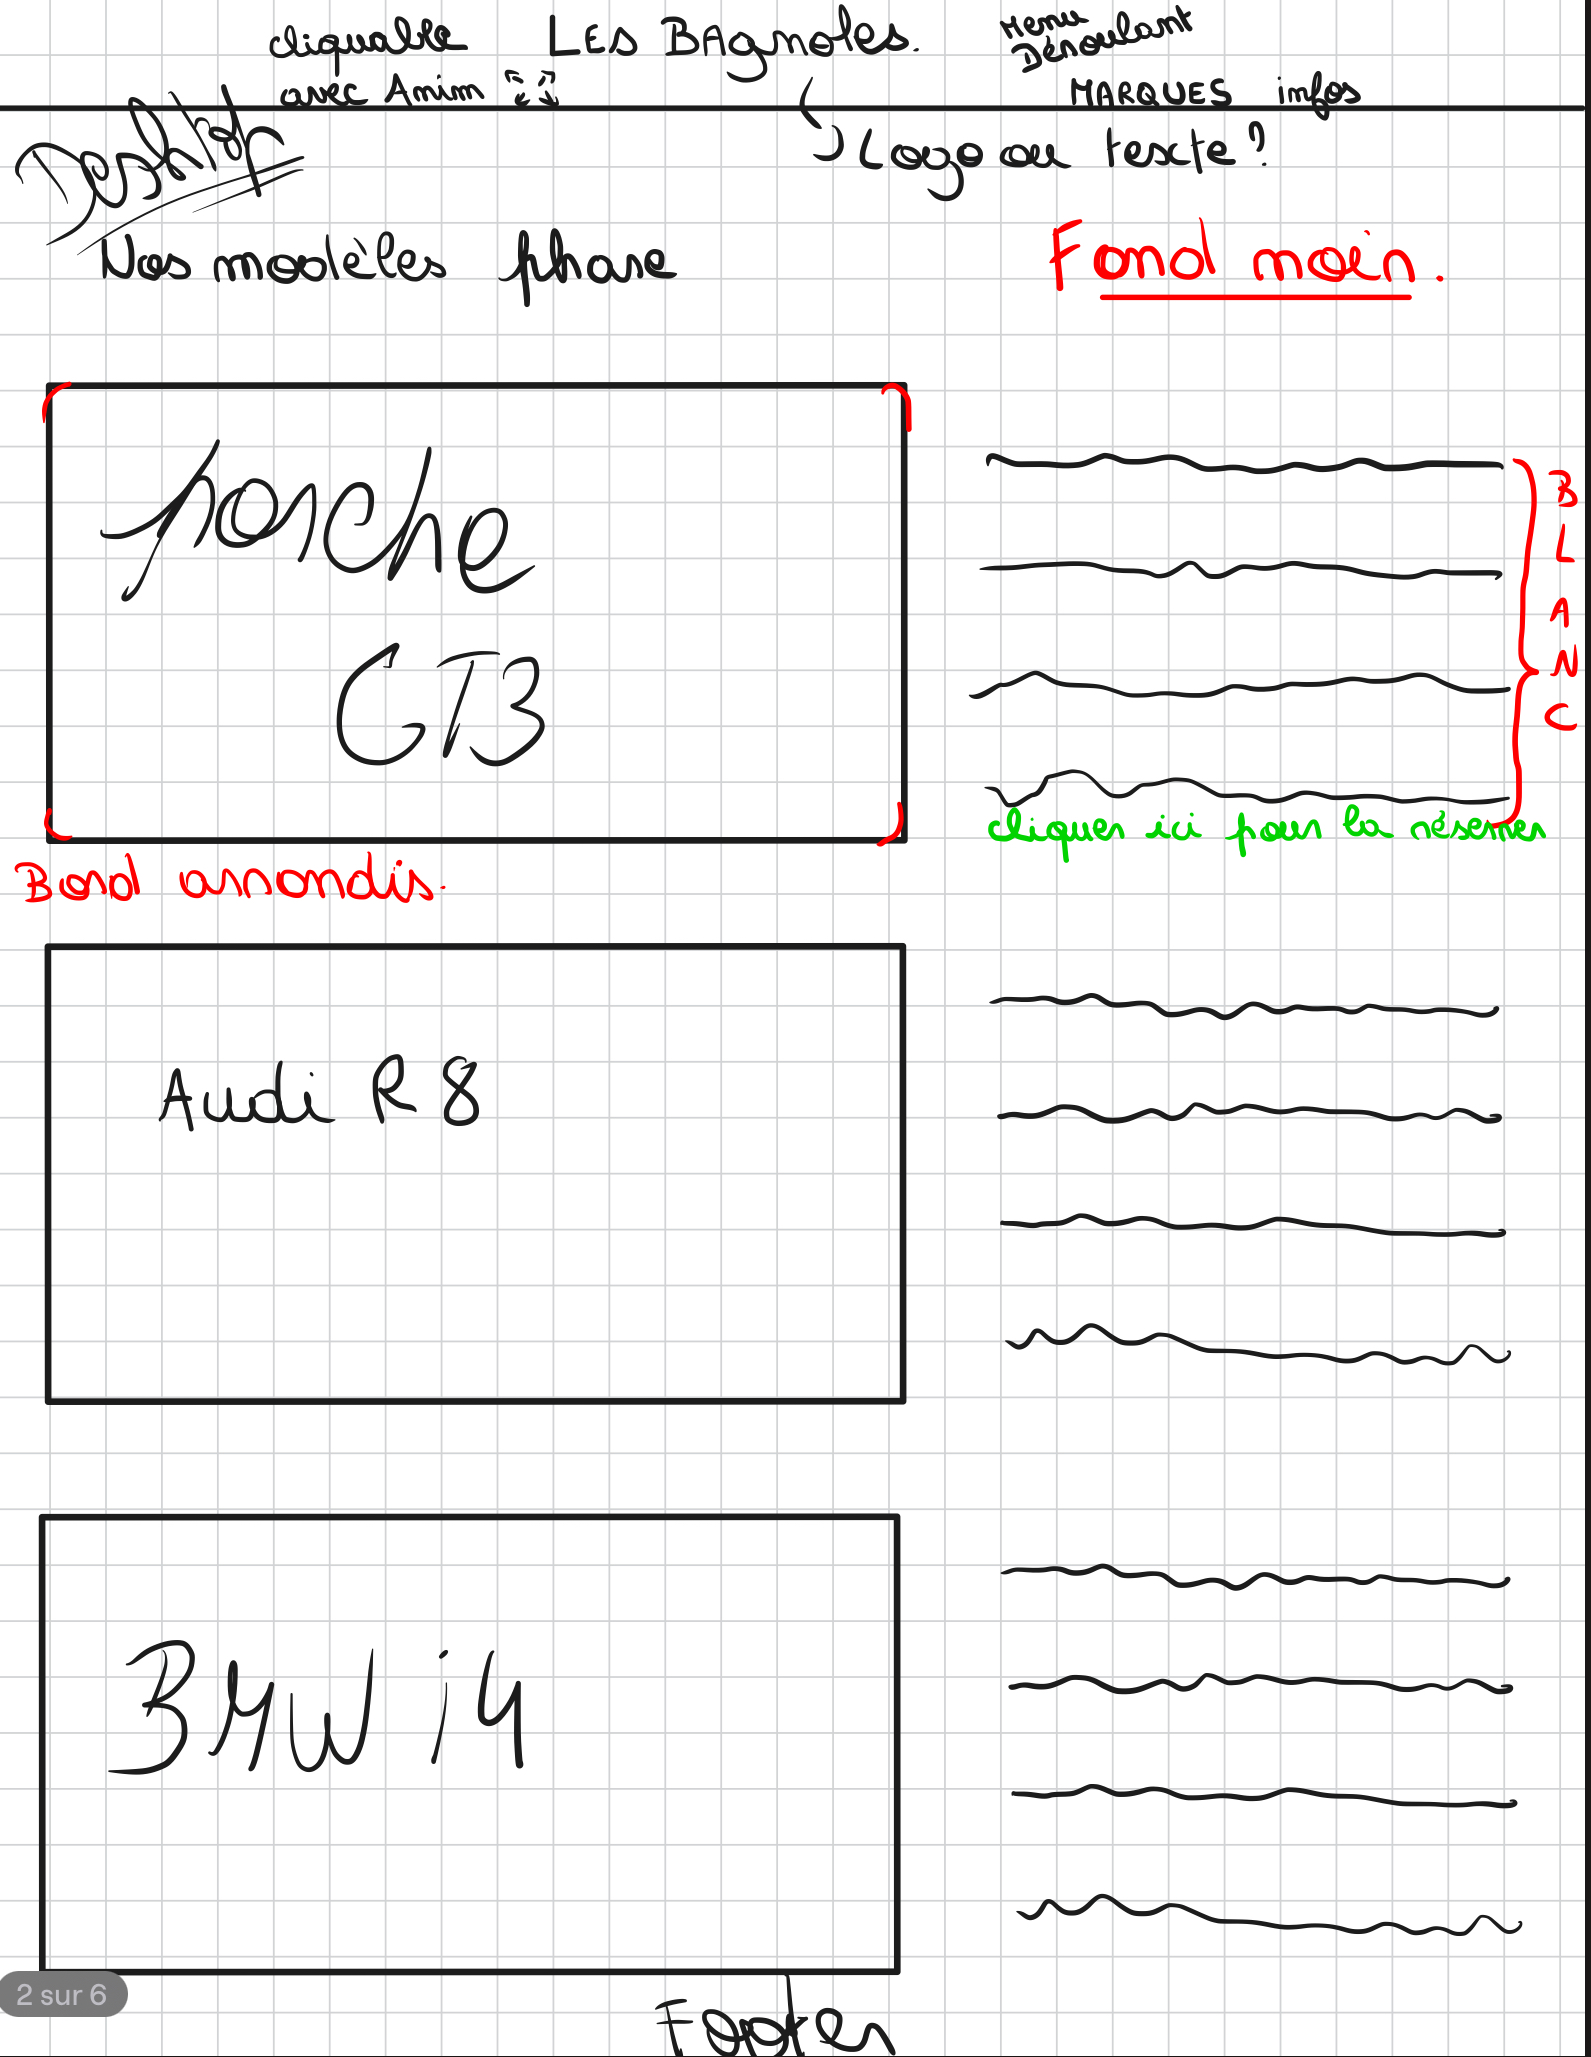 cliquable LES BAgnoles. Menu
Déroulant
avec Anim MARQUES infos
Desktop
Logo ou texte?
Nos modèles phare
Fond noir.
porche
GT3
BLANC
cliquer ici pour la réserver
Bord arrondis.
Audi R8
BMW i4
2 sur 6
Footer